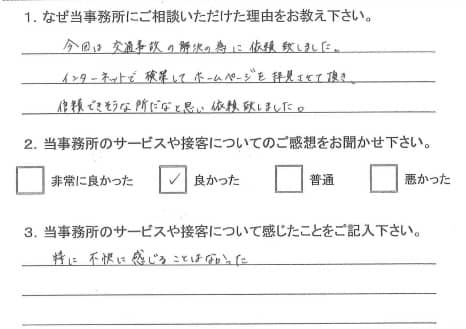 1. なぜ当事務所にご相談いただけた理由をお教え下さい。
今回は交通事故の解決の為に依頼致しました。
インターネットで検索してホームページを拝見させて頂き、
信頼できそうな所だなと思い依頼致しました。
2. 当事務所のサービスや接客についてのご感想をお聞かせ下さい。
非常に良かった ✓ 良かった 普通 悪かった
3. 当事務所のサービスや接客について感じたことをご記入下さい。
特に不快に感じることはなかった